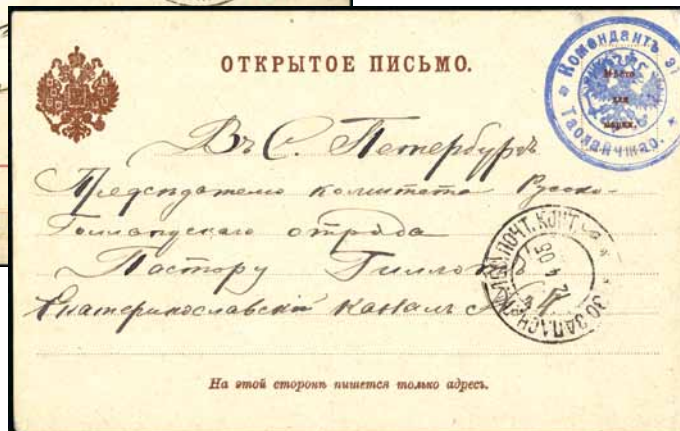 ОТКРЫТОЕ ПИСЬМО.
Комендантъ эт
Таоланчжао.
Мѣсто
для
марки.
Въ С. Петербургъ
Председателю комитета Русско-
Голландскаго отряда
Пастору
Екатеринославскій Каналъ
ЗАПАСН. ПОЧТ. КОНТ.
На этой сторонѣ пишется только адресъ.